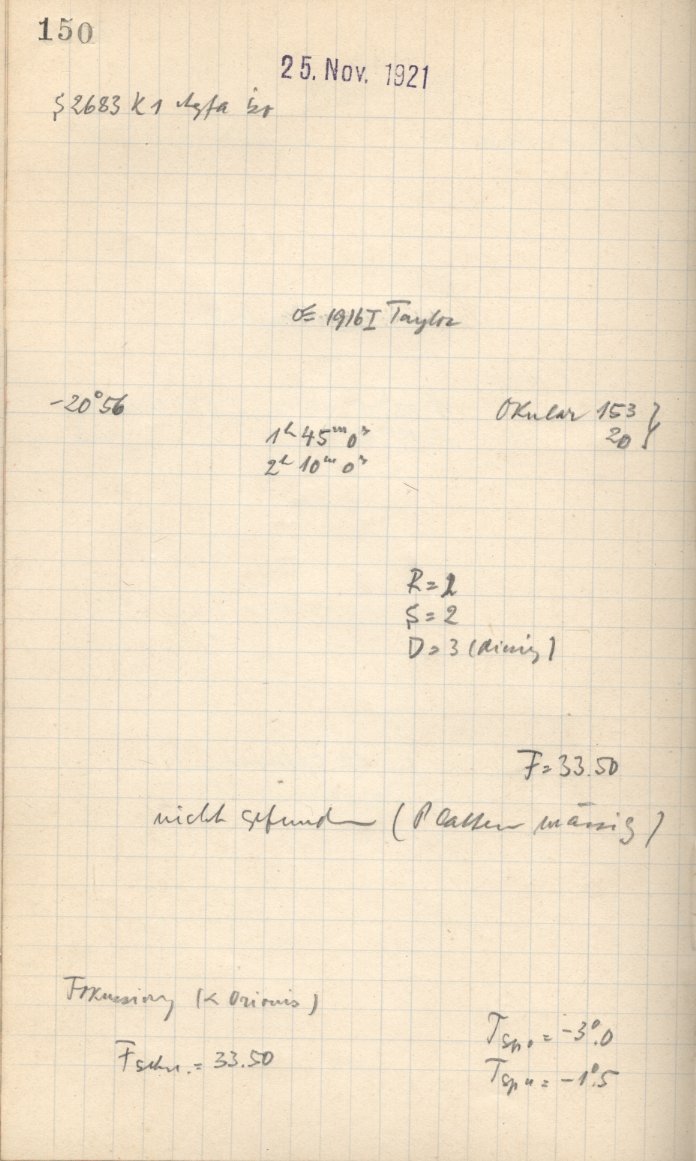 150
25. Nov. 1921
S 2683 K1 Agfa Iso
☄ 1916 I Taylor
-20°56
Okular 153 }
20 }
1ʰ 45ᵐ 0ˢ
2ʰ 10ᵐ 0ˢ
R = 2
S = 2
D = 3 (diesig)
F = 33.50
nicht gefunden (Platten mässig)
Fokussierg (κ Orionis)
F schn. = 33.50
T Sp o = -3°.0
T Sp u = -1°.5